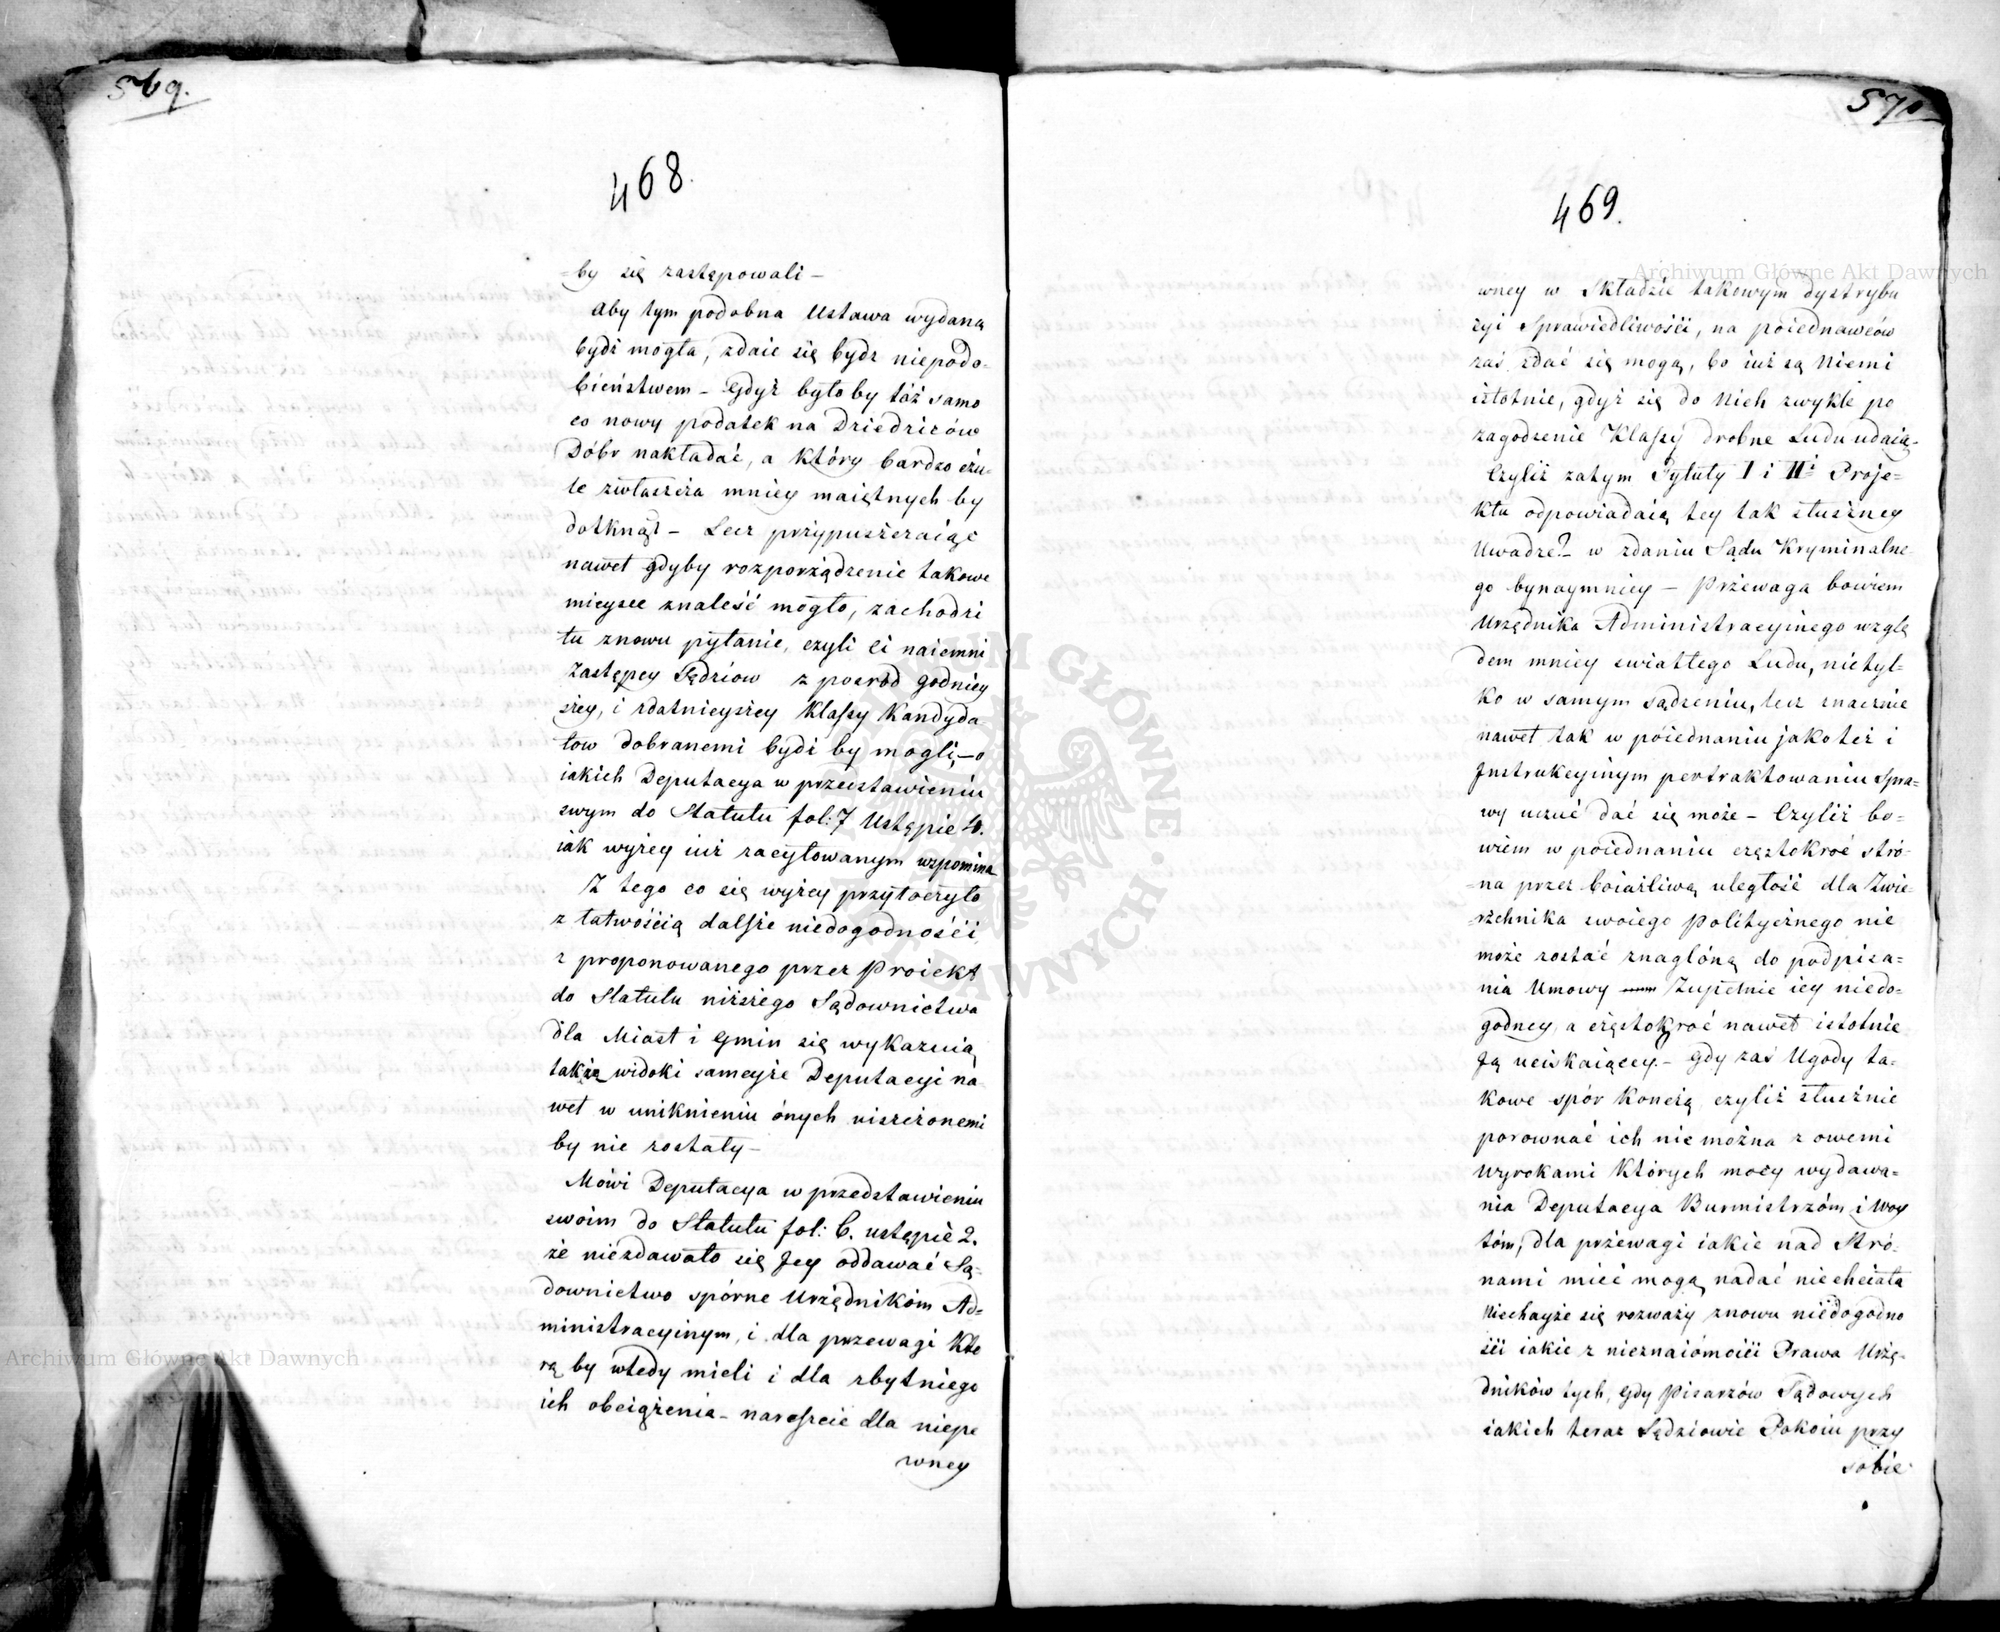 569.
468.
=by się zastępowali –
Aby tym podobna Ustawa wydaną
bydź mogła, zdaie się bydz niepodo-
bieństwem – Gdyż byłoby tóż samo
co nowy podatek na Dziedziców
Dóbr nakładać, a który bardzo czu-
le zwłaszcza mniey maiętnych by
dotknął – Lecz przypuszczaiąc
nawet gdyby rozporządzenie takowe
mieysce znaleść mogło, zachodzi
tu znowu pytanie, czyli ci naiemni
Zastępcy Sędziow z posród godniey
szey, i zdatnieyszey Klassy Kandyda
tow dobranemi bydź by mogli, – o
iakich Deputacya w przedstawieniu
swym do Statutu fol: 7 Ustępie 4.
iak wyżey iuż zacytowanym wzpomina
Z tego co się wyżey przytoczyło
z łatwością dalsze niedogodności
z proponowanego przez Proiekt
do Statutu niższego Sądownictwa
dla Miast i Gmin się wykazuią
takżę widoki sameyże Deputacyi na
wet w uniknieniu ónych uiszczonemi
by nie zostały –
Mówi Deputacya w przedstawieniu
swoim do Statutu fol: 6. ustępie 2.
że niezdawało się Jey oddawać Są-
downictwo spórne Urzędnikóm Ad-
ministracyinym, i dla przewagi któ
rą by wtedy mieli i dla zbytniego
ich obciążenia – nareszcie dla niepe
wney
570
469.
wney w Składzie takowym dystrybu
cyi Sprawiedliwości, na poiednawców
zaś zdać się mogą, bo iuż są Niemi
istotnie, gdyż się do Nich zwykle po
zagodzenie Klassy drobne Ludu udaią.
Czyliż zatym Tytuły I i IIi Proje=
ktu odpowiadaią tey tak słuszney
Uwadze? – w zdaniu Sądu Kryminalne
go bynaymniey – Przewaga bowiem
Urzędnika Administracyinego wzglę
dem mniey swiatłego Ludu, nietyl-
ko w samym sądzeniu, lecz znacznie
nawet tak w poiednaniu jakoteż i
Instrukcyinym pertraktowaniu spra=
wy uczuć dać się może – Czyliż bo=
wiem w poiednaniu częstokroć stró-
=na przez boiaźliwą uległość dla Zwie-
=rzchnika swoiego politycznego nie
może zostać znaglóną do podpisa=
nia Umowy Zupełnie iey niedo-
godney, a częstokroć nawet istotnie
Ją uciskaiącey. – gdy zaś Ugody ta-
kowe spór Kończą, czyliż słusznie
porownać ich nie można z owemi
wyrokami których mocy wydawa=
nia Deputacya Burmistrzóm i Woy
tóm, dla przewagi iakie nad Stró-
nami mieć mogą nadać niechciała
Niechayże się rozważy znowu niedogodno
ści iakie z nieznaiómości Prawa Urzę-
dników tych, gdy Pisarzów Sądowych
iakich teraz Sędziowie Pokoiu przy
sobie
Archiwum Główne Akt Dawnych
Archiwum Główne Akt Dawnych
ARCHIWUM GŁÓWNE AKT DAWNYCH